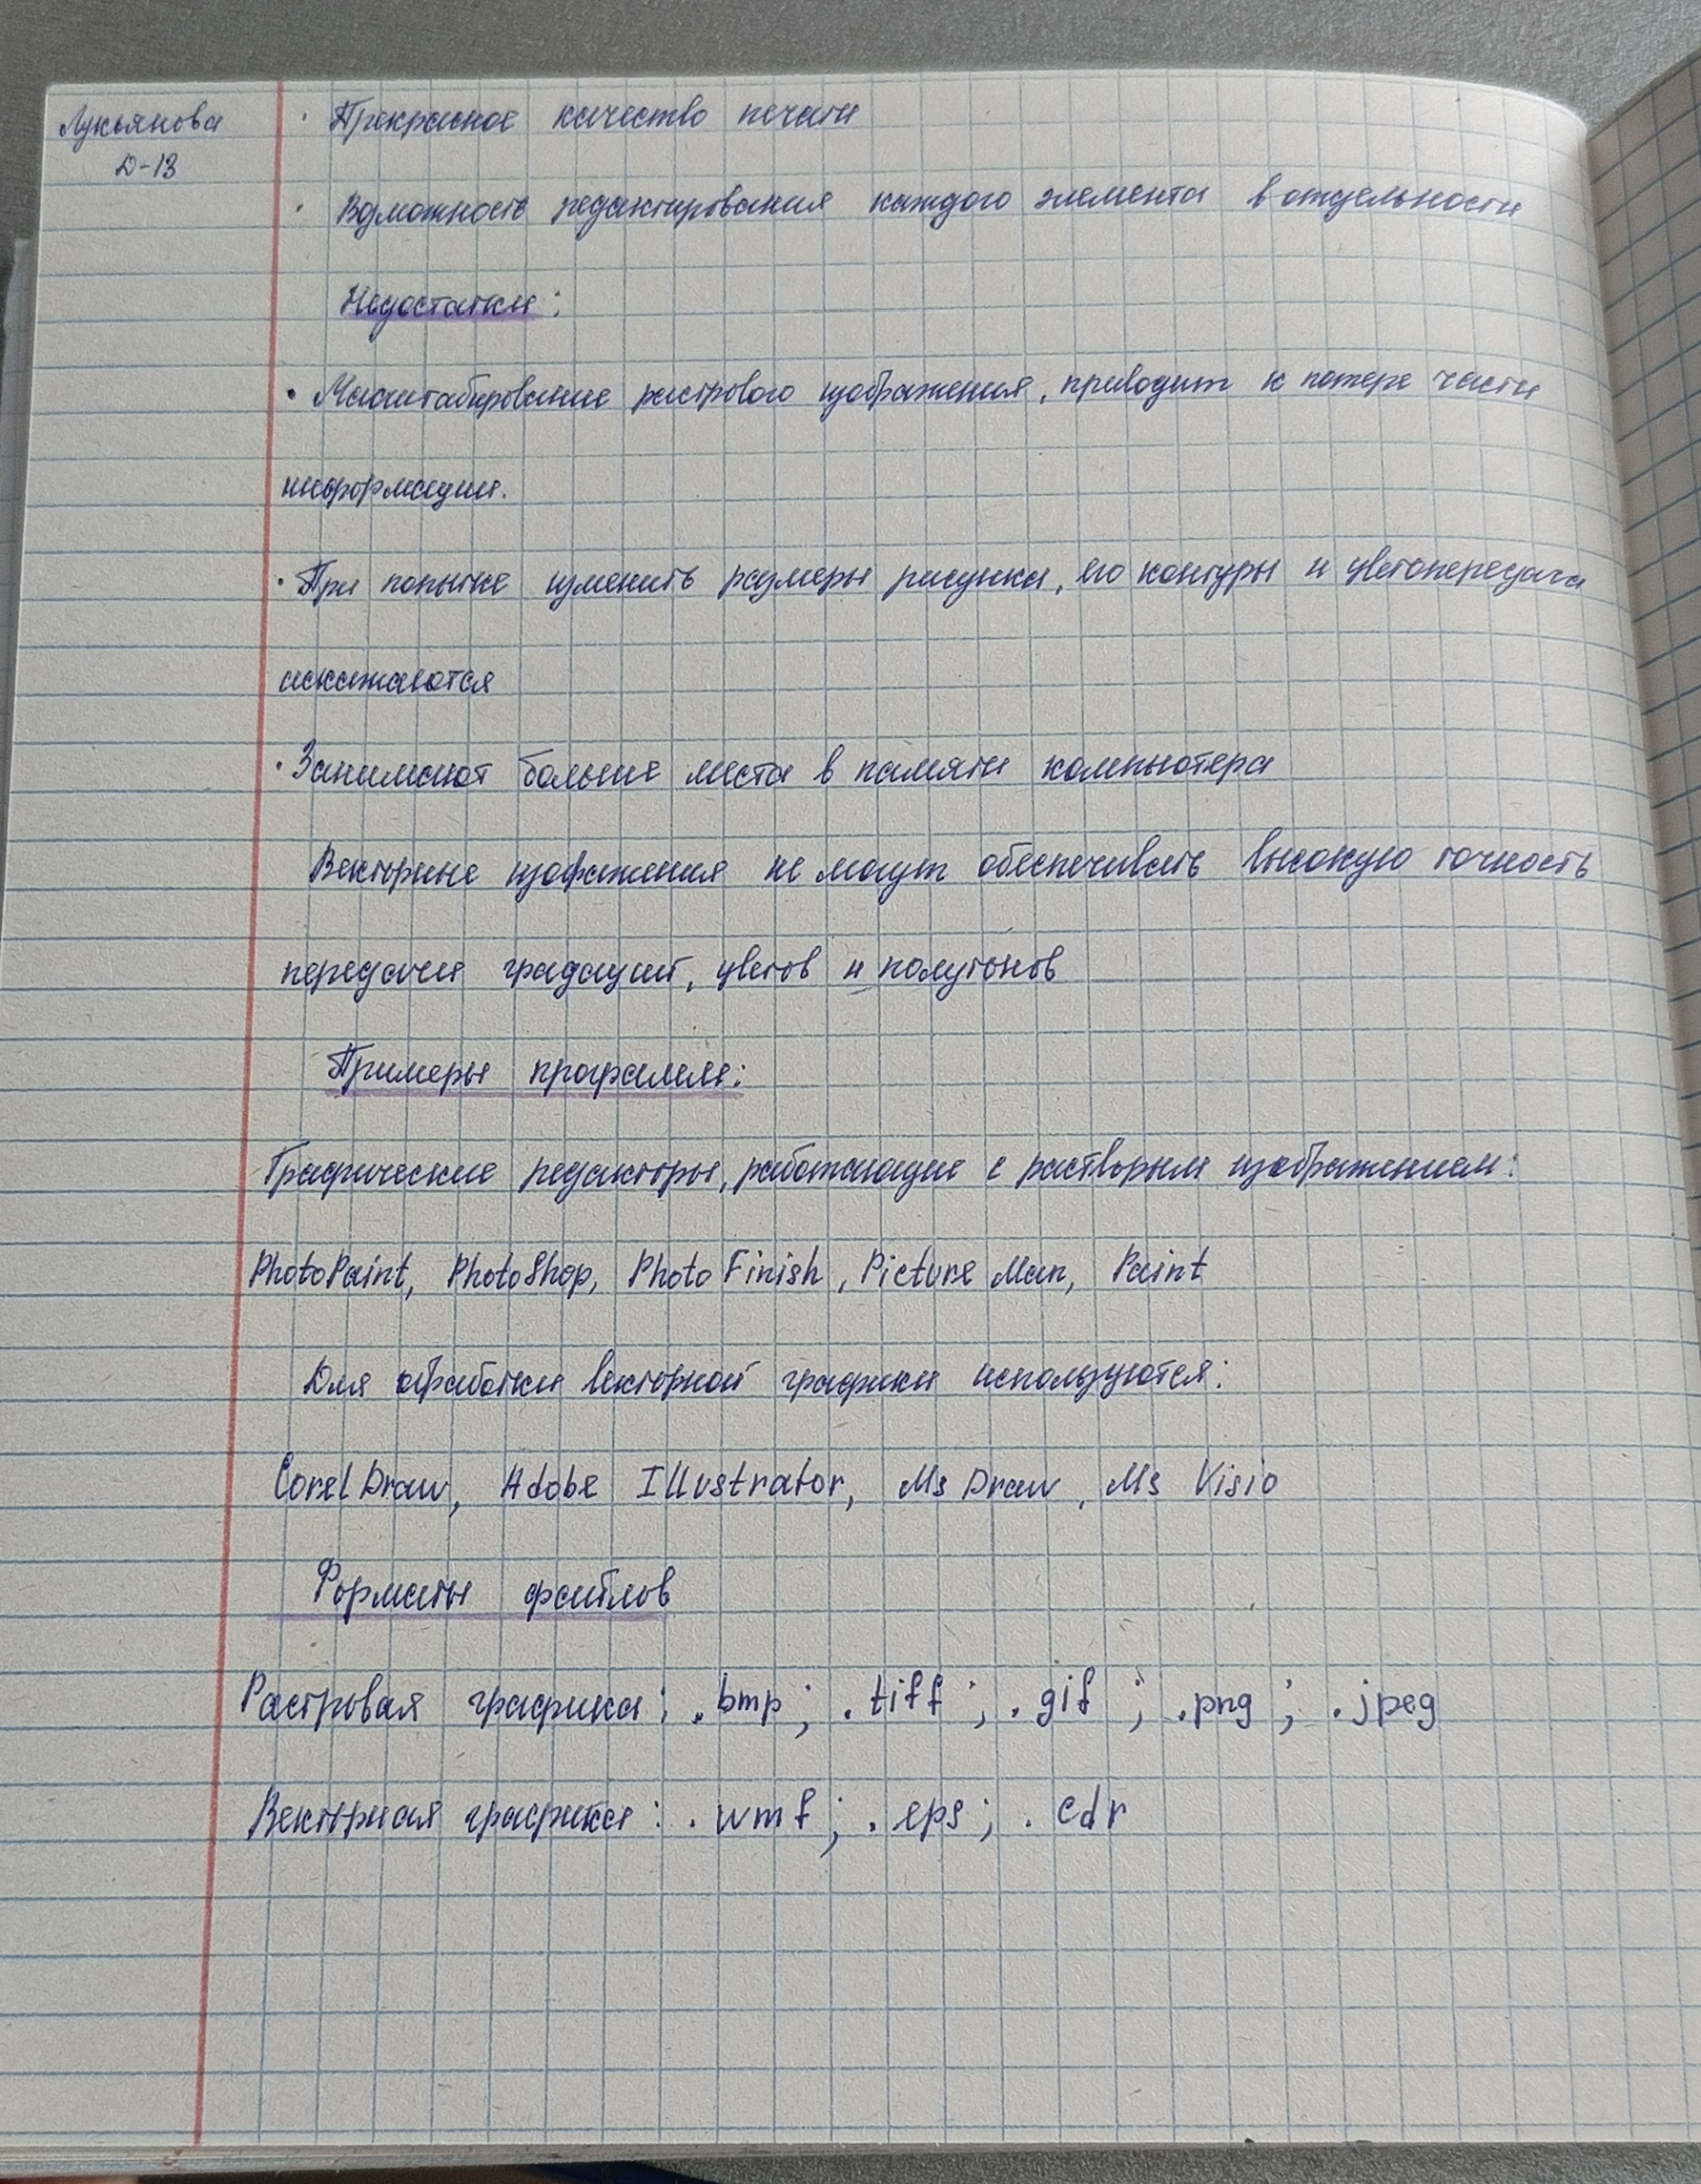 Лукьянова
Д-13
· Прекрасное качество печати
· Возможность редактирования каждого элемента в отдельности
Недостатки:
· Масштабирование растрового изображения, приводит к потере части
информации.
· При попытке изменить размеры рисунка, его контуры и цветопередача
искажаются
· Занимают больше места в памяти компьютера
Векторные изображения не могут обеспечивать высокую точность
передачи градаций, цветов и полутонов
Примеры программ:
Графические редакторы, работающие с растворым изображением:
PhotoPaint, PhotoShop, Photo Finish, Picture Man, Paint
Для обработки векторной графики используются:
Corel Draw, Adobe Illustrator, Ms Draw, Ms Visio
Форматы файлов
Растровая графика: .bmp; .tiff; .gif; .png; .jpeg
Векторная графика: .wmf; .eps; .cdr